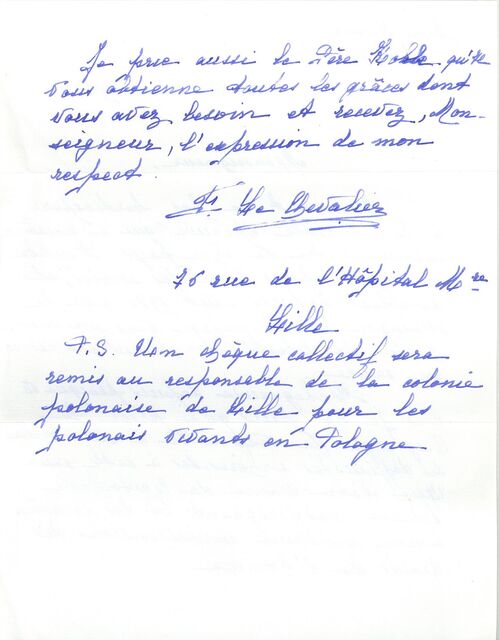 Je prie aussi le Père Kolbe qu'il
vous obtienne toutes les grâces dont
vous avez besoin et recevez, Mon-
seigneur, l'expression de mon
respect.
Le Chevalier
76 rue de l'Hôpital Mre
Lille
P.S. Un chèque collectif sera
remis au responsable de la colonie
polonaise de Lille pour les
polonais vivants en Pologne